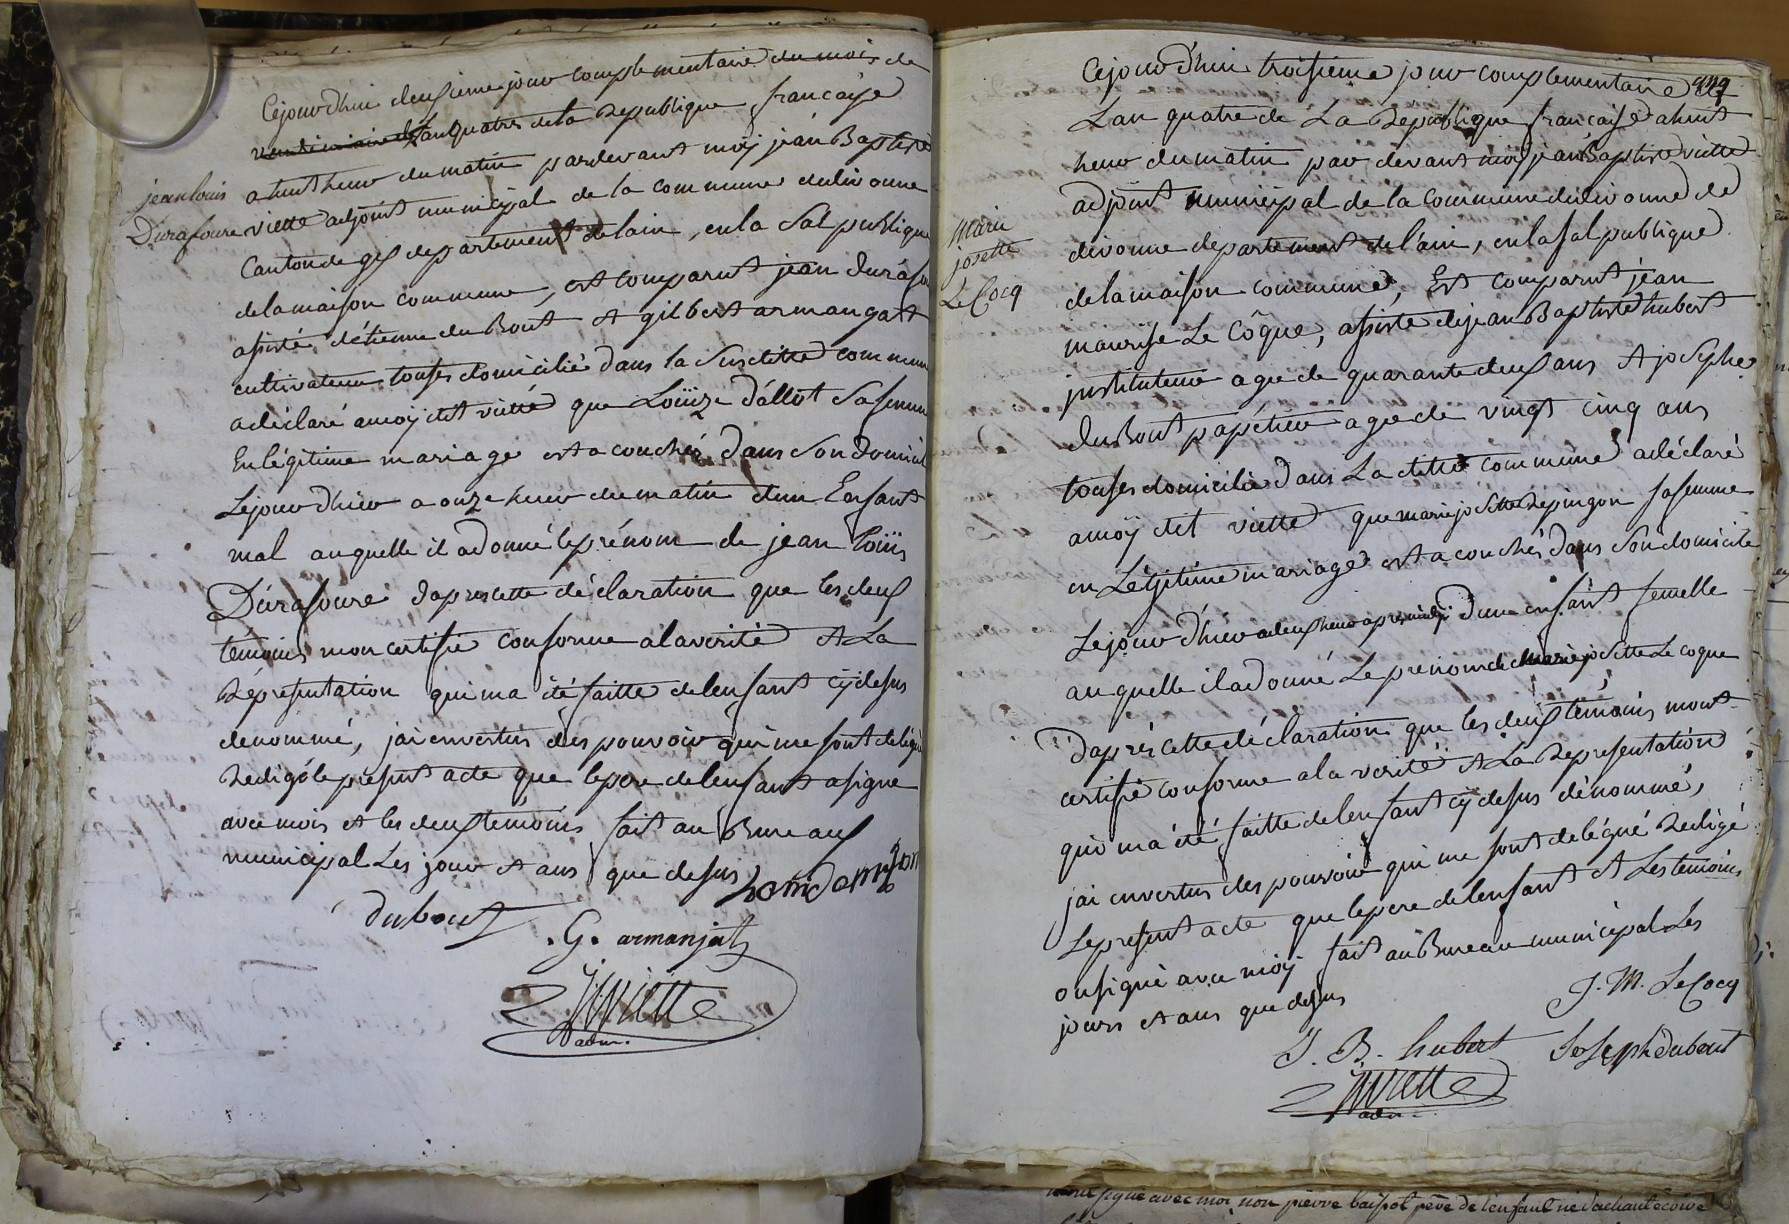 Cejourdhui deusieme jour complementaire du mois de
vendemiaire Lan quatres de la Republique francaise
a huit heur du matin pardevant moÿ jean Baptiste
jean louis
Durafoure
viette adjoint municipal de la commune de divonne
Canton de gex departement de lain, en la Sal publique
de la maison commune, est comparut jean durafou
assisté détienne du Bout et gilbert armangat
cultivateur touses domicilié dans la Susditte commune
a déclaré a moÿ dit viette que Loüize Dállot Sa femme
En légitime mariage est acouchéz dans Son Domicil
Lejour dhier a onze heur du matin dun Enfant
mal auquelle il a donné le prénom de jean loüis
Durafoure dapres cette déclaration que les deux
témoins mon certifie conforme a la verité et La
Représentation qui ma été faitte de lenfant cÿ desus
denommé, jai envertus dès pouvoir qui me sont delégu
Redigé le présent acte que lepere de lenfant a signe
avec mois et les deux temoins fait au Bureaux
municipal Les jour et ans que desus
dubout
G. armanjat
JBViette
adm.
Cejourdhui troisieme jour complementaire
Lan quatre de La Republique française a huit
heur du matin par devant moÿ jean Baptiste viette
adjoint municipal de la Commune de divonne de
Marie
josette
LeCocq
divonne departement de lain, en la sal publique
de la maison commune, Est comparut jean
maurise Le Côque, assisté de jean Baptiste hubert
justituteur age de quarante deux ans et josephe
du Bout papétier age de vingt cinq ans
touses domicilié dans La ditte commune a déclaré
a moÿ dit viette que marie josette Depingon sa femme
en Légitime mariage est acouchés dans Son domicile
Lejour dhier a deux heur apres midÿ dune enfant femelle
auquelle il a donné Le prenom de Marie josette Le coque
Dapres cette déclaration que les deux témoins mont
certifié conforme a la verité et La Representation
qui ma été faitte de lenfant cÿ desus dénommé,
jai envertus des pouvoir qui me sont delégué Redigé
Le present acte que lepere de lenfant et Les temoins
on signé avec moÿ fait au Bureau municipal Les
jours et ans que desus
J. M. LeCocq
J. B. hubert
Joseph dubout
JBViette
adm.
non signé avec moi non pierre baizot père de l'enfant